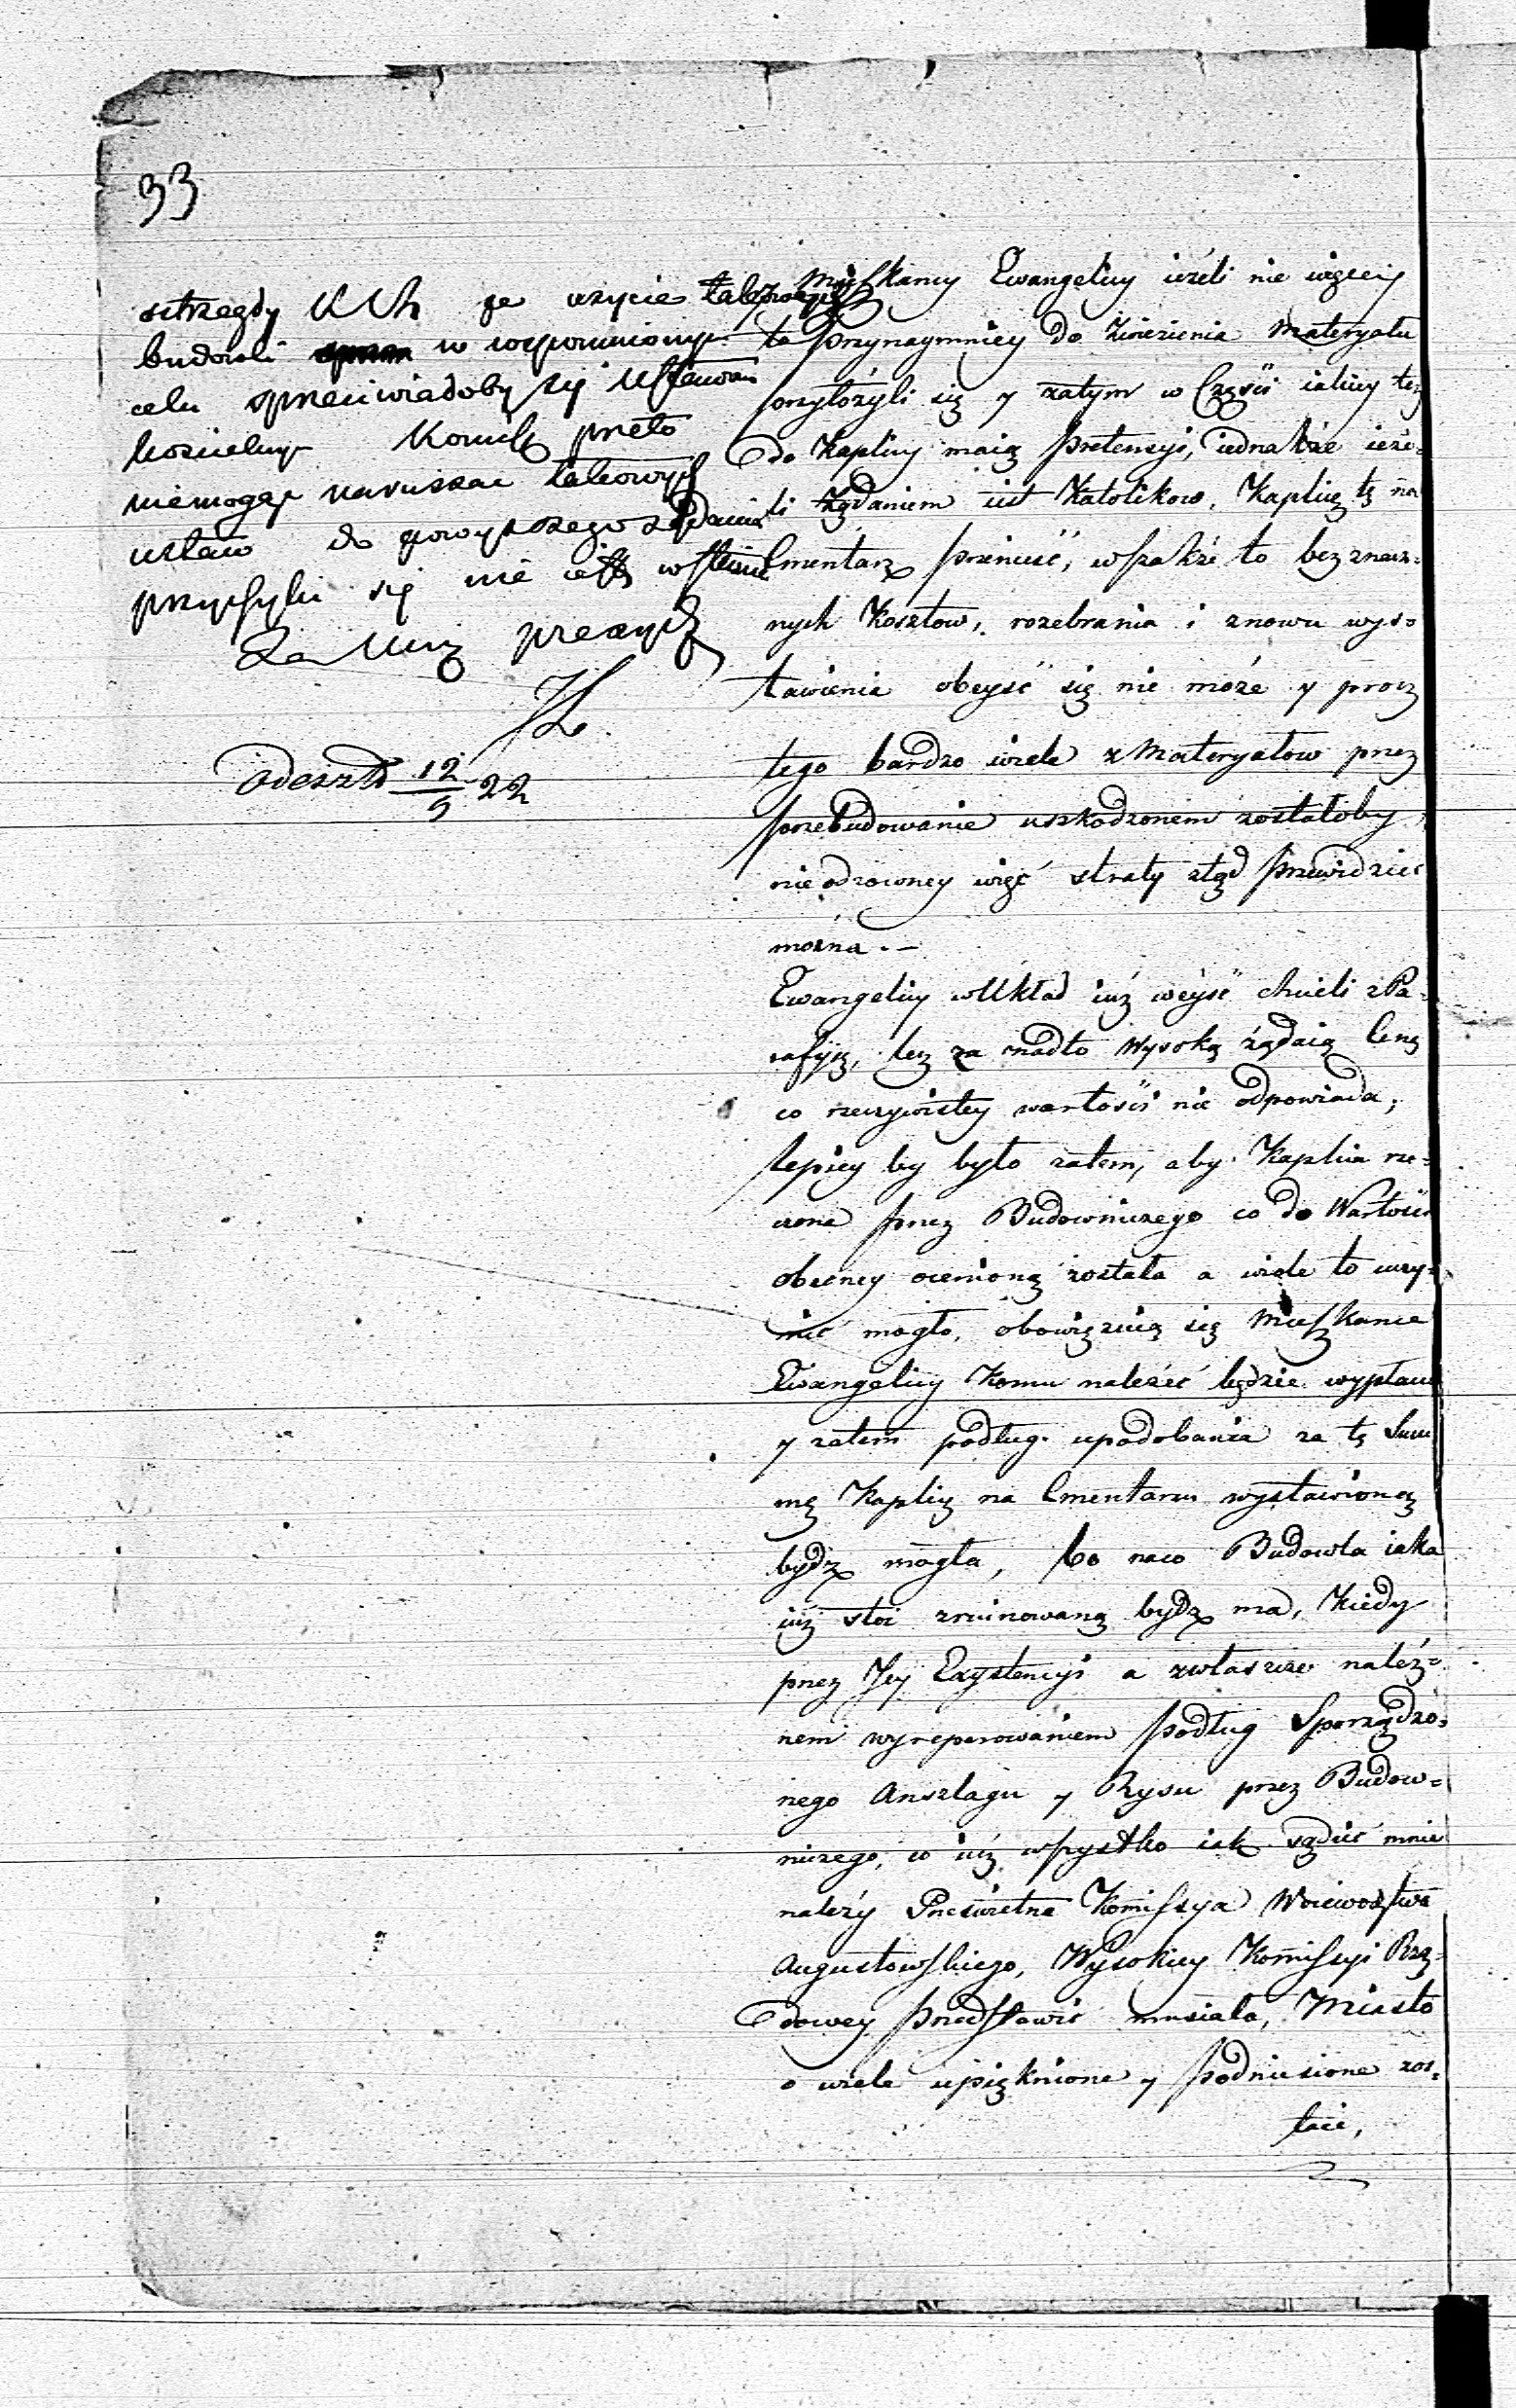 33
ostrzegdy KWh ze uzycie takowey
budowli w wspomnionym
celu sprzeciwiałoby się Ustawom
koscielnym Komiss przeto
niemogąc naruszac takowych
ustaw do powyższego żądania
przychylic się nie iest w stanie
Za Kom prezyd
odeszło 12/9 22
Mieszkancy Ewangeliccy ieżeli nie więcey
to przynaymniey do Zwiezienia Materyału
przyłożyli się y zatym w Części iakiey też
do Kaplicy maią pretensyi, iednakże ieże-
li żądaniem iest Katolikow, Kaplicę tę na
Cmentarz przenieść, wszakże to bez znacz-
nych Kosztow, rozebrania i znowu wys-
tawienia obeyść się nie może y procz
tego bardzo wiele z Materyałow przez
przebudowanie uszkodzonem zostałoby
nieodzowney więc straty ztąd przewidzieć
można. —
Ewangelicy w Układ iuż weyść chcieli z Pa-
rafyą, lecz za nadto wysoką żądaią Cenę
co rzeczywistey wartości nie odpowiada,
lepiey by było zatem, aby Kaplica rze-
czona przez Budowniczego co do Wartości
obecney ocenioną została a wiele to uczy-
nić mogło, obowiązuią się Mieszkance
Ewangeliccy Komu należeć będzie wypłacić
y zatem podług upodobania za tę Sum
mę Kaplicę na Cmentarzu wystawioną
bydz mogła, bo naco Budowla iaka
iuż stoi zruinowaną bydz ma, Kiedy
przez Jey Exystencyi a zwłaszcza należ-
nem wyreperowaniem podług Sporządzo-
nego Anszlagu y Rysu przez Budow-
niczego, co iuż wszystko iak sądzić mnie
należy Prześwietna Komissya Woiewodztwa
Augustowskiego, Wysokiey Komissyi Rzą-
dowey przedstawić musiała, Miasto
o wiele upięknione y podniesione zos-
taie,